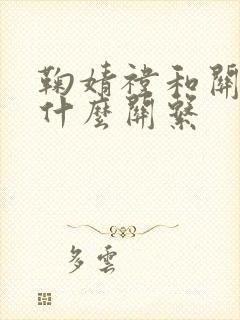 鞠婧禕和關
什麼關繫
多雲